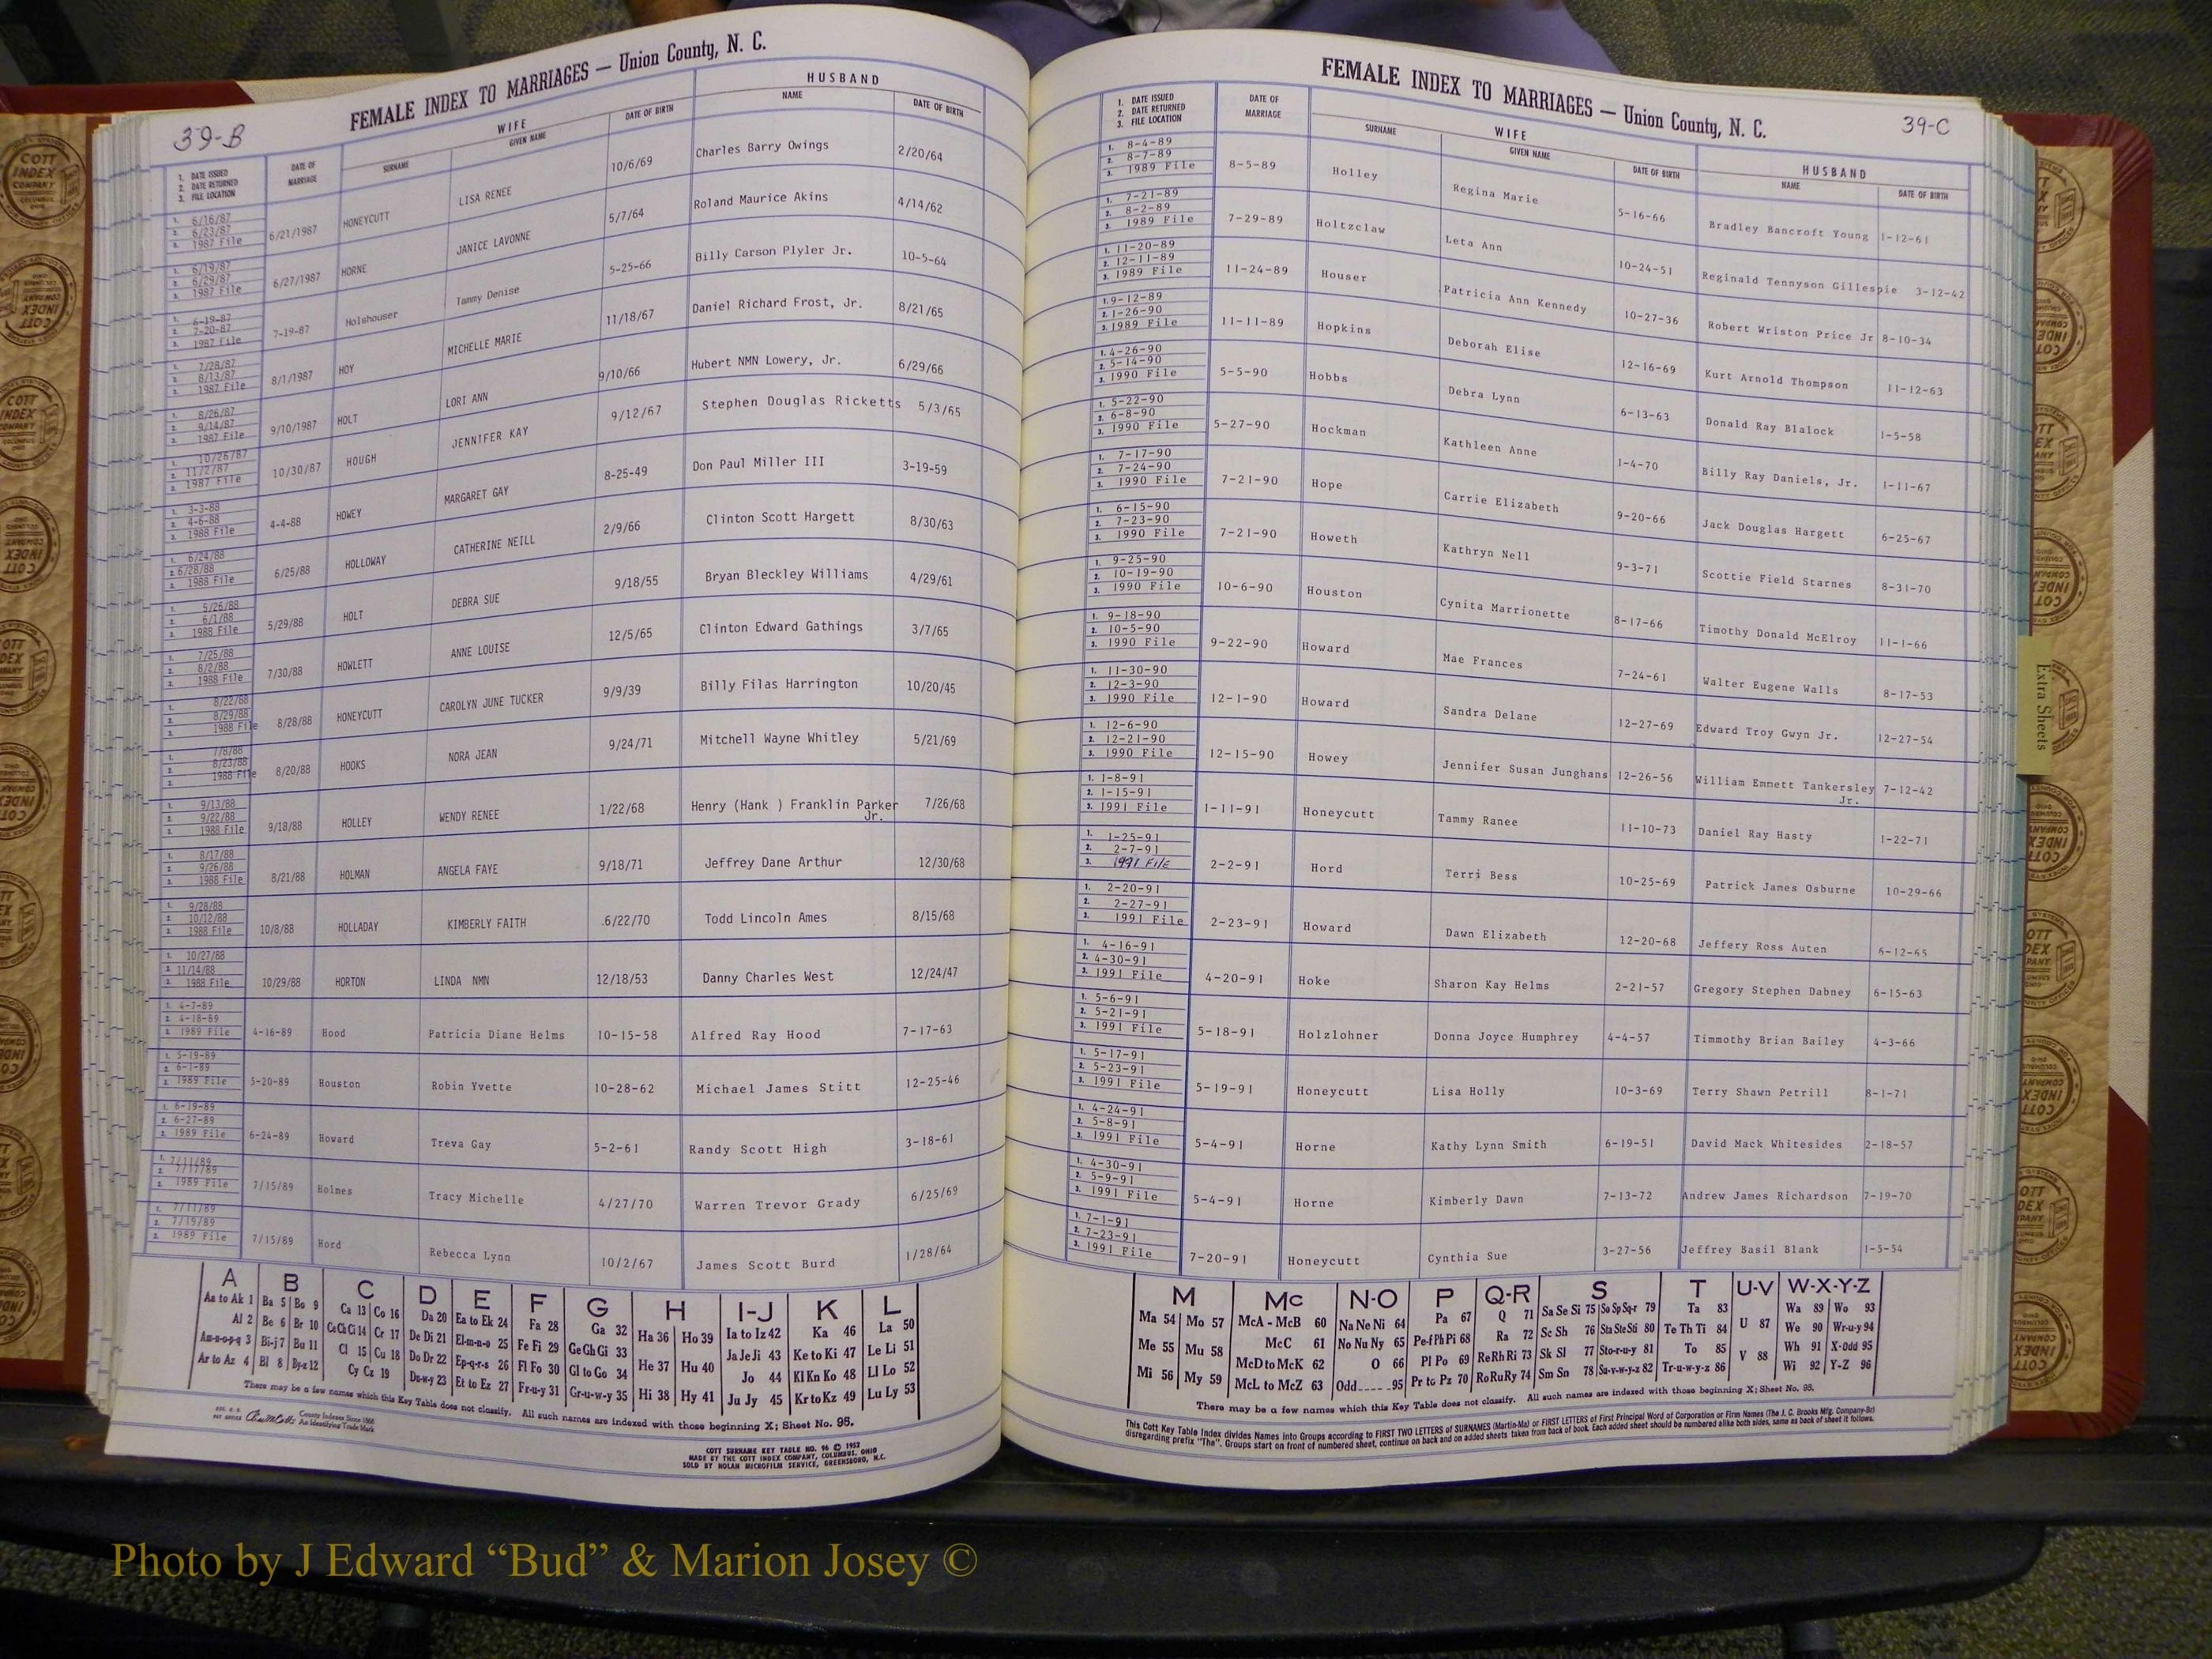 39-B
FEMALE INDEX TO MARRIAGES — Union County, N. C.
1. DATE ISSUED 2. DATE RETURNED 3. FILE LOCATION
DATE OF MARRIAGE
WIFE
SURNAME GIVEN NAME DATE OF BIRTH
HUSBAND
NAME DATE OF BIRTH
1. 6/16/87 2. 6/23/87 3. 1987 File 6/21/1987 HONEYCUTT LISA RENEE 10/6/69 Charles Barry Owings 2/20/64
1. 6/19/87 2. 6/29/87 3. 1987 File 6/27/1987 HORNE JANICE LAVONNE 5/7/64 Roland Maurice Akins 4/14/62
1. 6-19-87 2. 7-20-87 3. 1987 File 7-19-87 Holshouser Tammy Denise 5-25-66 Billy Carson Plyler Jr. 10-5-64
1. 7/28/87 2. 8/13/87 3. 1987 File 8/1/1987 HOY MICHELLE MARIE 11/18/67 Daniel Richard Frost, Jr. 8/21/65
1. 8/26/87 2. 9/14/87 3. 1987 File 9/10/1987 HOLT LORI ANN 9/10/66 Hubert NMN Lowery, Jr. 6/29/66
1. 10/26/87 2. 11/2/87 3. 1987 File 10/30/87 HOUGH JENNIFER KAY 9/12/67 Stephen Douglas Ricketts 5/3/65
1. 3-3-88 2. 4-6-88 3. 1988 File 4-4-88 HOWEY MARGARET GAY 8-25-49 Don Paul Miller III 3-19-59
1. 6/24/88 2. 6/28/88 3. 1988 File 6/25/88 HOLLOWAY CATHERINE NEILL 2/9/66 Clinton Scott Hargett 8/30/63
1. 5/26/88 2. 6/1/88 3. 1988 File 5/29/88 HOLT DEBRA SUE 9/18/55 Bryan Bleckley Williams 4/29/61
1. 7/25/88 2. 8/2/88 3. 1988 File 7/30/88 HOWLETT ANNE LOUISE 12/5/65 Clinton Edward Gathings 3/7/65
1. 8/22/88 2. 8/29/88 3. 1988 File 8/28/88 HONEYCUTT CAROLYN JUNE TUCKER 9/9/39 Billy Filas Harrington 10/20/45
1. 7/8/88 2. 8/23/88 3. 1988 File 8/20/88 HOOKS NORA JEAN 9/24/71 Mitchell Wayne Whitley 5/21/69
1. 9/13/88 2. 9/22/88 3. 1988 File 9/18/88 HOLLEY WENDY RENEE 1/22/68 Henry (Hank ) Franklin Parker Jr. 7/26/68
1. 8/17/88 2. 9/26/88 3. 1988 File 8/21/88 HOLMAN ANGELA FAYE 9/18/71 Jeffrey Dane Arthur 12/30/68
1. 9/28/88 2. 10/12/88 3. 1988 File 10/8/88 HOLLADAY KIMBERLY FAITH .6/22/70 Todd Lincoln Ames 8/15/68
1. 10/27/88 2. 11/14/88 3. 1988 File 10/29/88 HORTON LINDA NMN 12/18/53 Danny Charles West 12/24/47
1. 4-7-89 2. 4-18-89 3. 1989 File 4-16-89 Hood Patricia Diane Helms 10-15-58 Alfred Ray Hood 7-17-63
1. 5-19-89 2. 6-1-89 3. 1989 File 5-20-89 Houston Robin Yvette 10-28-62 Michael James Stitt 12-25-46
1. 6-19-89 2. 6-27-89 3. 1989 File 6-24-89 Howard Treva Gay 5-2-61 Randy Scott High 3-18-61
1. 7/11/89 2. 7/17/89 3. 1989 File 7/15/89 Holmes Tracy Michelle 4/27/70 Warren Trevor Grady 6/25/69
1. 7/11/89 2. 7/19/89 3. 1989 File 7/15/89 Hord Rebecca Lynn 10/2/67 James Scott Burd 1/28/64
A B C D E F G H I-J K L
Aa to Ak 1 Ba 5 Bo 9 Ca 13 Co 16 Da 20 Ea to Ek 24 Fa 28 Ga 32 Ha 36 Ho 39 Ia to Iz 42 Ka 46 La 50
Al 2 Be 6 Br 10 Ce Ch Ci 14 Cr 17 De Di 21 El-m-n-o 25 Fe Fi 29 Ge Gh Gi 33 Ja Je Ji 43 Ke to Ki 47 Le Li 51
Am-n-o-p-q 3 Bi-j 7 Bu 11 Cl 15 Cu 18 Do Dr 22 Ep-q-r-s 26 Fl Fo 30 Gl to Go 34 He 37 Hu 40 Jo 44 Kl Kn Ko 48 Ll Lo 52
Ar to Az 4 Bl 8 By-z 12 Cy Cz 19 Du-w-y 23 Et to Ez 27 Fr-u-y 31 Gr-u-w-y 35 Hi 38 Hy 41 Ju Jy 45 Kr to Kz 49 Lu Ly 53
There may be a few names which this Key Table does not classify. All such names are indexed with those beginning X; Sheet No. 95.
County Indexes Since 1866
An Identifying Trade Mark
COTT SURNAME KEY TABLE NO. 96 © 1952
MADE BY THE COTT INDEX COMPANY, COLUMBUS, OHIO
SOLD BY NOLAN MICROFILM SERVICE, GREENSBORO, N.C.
FEMALE INDEX TO MARRIAGES — Union County, N. C.
39-C
1. DATE ISSUED 2. DATE RETURNED 3. FILE LOCATION
DATE OF MARRIAGE
WIFE
SURNAME GIVEN NAME DATE OF BIRTH
HUSBAND
NAME DATE OF BIRTH
1. 8-4-89 2. 8-7-89 3. 1989 File 8-5-89 Holley Regina Marie 5-16-66 Bradley Bancroft Young 1-12-61
1. 7-21-89 2. 8-2-89 3. 1989 File 7-29-89 Holtzclaw Leta Ann 10-24-51 Reginald Tennyson Gillespie 3-12-42
1. 11-20-89 2. 12-11-89 3. 1989 File 11-24-89 Houser Patricia Ann Kennedy 10-27-36 Robert Wriston Price Jr 8-10-34
1. 9-12-89 2. 1-26-90 3. 1989 File 11-11-89 Hopkins Deborah Elise 12-16-69 Kurt Arnold Thompson 11-12-63
1. 4-26-90 2. 5-14-90 3. 1990 File 5-5-90 Hobbs Debra Lynn 6-13-63 Donald Ray Blalock 1-5-58
1. 5-22-90 2. 6-8-90 3. 1990 File 5-27-90 Hockman Kathleen Anne 1-4-70 Billy Ray Daniels, Jr. 1-11-67
1. 7-17-90 2. 7-24-90 3. 1990 File 7-21-90 Hope Carrie Elizabeth 9-20-66 Jack Douglas Hargett 6-25-67
1. 6-15-90 2. 7-23-90 3. 1990 File 7-21-90 Howeth Kathryn Nell 9-3-71 Scottie Field Starnes 8-31-70
1. 9-25-90 2. 10-19-90 3. 1990 File 10-6-90 Houston Cynita Marrionette 8-17-66 Timothy Donald McElroy 11-1-66
1. 9-18-90 2. 10-5-90 3. 1990 File 9-22-90 Howard Mae Frances 7-24-61 Walter Eugene Walls 8-17-53
1. 11-30-90 2. 12-3-90 3. 1990 File 12-1-90 Howard Sandra Delane 12-27-69 Edward Troy Gwyn Jr. 12-27-54
1. 12-6-90 2. 12-21-90 3. 1990 File 12-15-90 Howey Jennifer Susan Junghans 12-26-56 William Emmett Tankersley Jr. 7-12-42
1. 1-8-91 2. 1-15-91 3. 1991 File 1-11-91 Honeycutt Tammy Ranee 11-10-73 Daniel Ray Hasty 1-22-71
1. 1-25-91 2. 2-7-91 3. 1991 File 2-2-91 Hord Terri Bess 10-25-69 Patrick James Osburne 10-29-66
1. 2-20-91 2. 2-27-91 3. 1991 File 2-23-91 Howard Dawn Elizabeth 12-20-68 Jeffery Ross Auten 6-12-65
1. 4-16-91 2. 4-30-91 3. 1991 File 4-20-91 Hoke Sharon Kay Helms 2-21-57 Gregory Stephen Dabney 6-15-63
1. 5-6-91 2. 5-21-91 3. 1991 File 5-18-91 Holzlohner Donna Joyce Humphrey 4-4-57 Timmothy Brian Bailey 4-3-66
1. 5-17-91 2. 5-23-91 3. 1991 File 5-19-91 Honeycutt Lisa Holly 10-3-69 Terry Shawn Petrill 8-1-71
1. 4-24-91 2. 5-8-91 3. 1991 File 5-4-91 Horne Kathy Lynn Smith 6-19-51 David Mack Whitesides 2-18-57
1. 4-30-91 2. 5-9-91 3. 1991 File 5-4-91 Horne Kimberly Dawn 7-13-72 Andrew James Richardson 7-19-70
1. 7-1-91 2. 7-23-91 3. 1991 File 7-20-91 Honeycutt Cynthia Sue 3-27-56 Jeffrey Basil Blank 1-5-54
M Mc N-O P Q-R S T U-V W-X-Y-Z
Ma 54 Mo 57 McA - McB 60 Na Ne Ni 64 Pa 67 Q 71 Sa Se Si 75 So Sp Sq-r 79 Ta 83 U 87 Wa 89 Wo 93
Me 55 Mu 58 McC 61 No Nu Ny 65 Pe-f Ph Pi 68 Ra 72 Sc Sh 76 Sta Ste Sti 80 Te Th Ti 84 We 90 Wr-u-y 94
McD to McK 62 O 66 Pl Po 69 Re Rh Ri 73 Sk Sl 77 Sto-r-u-y 81 To 85 V 88 Wh 91 X-Odd 95
Mi 56 My 59 McL to McZ 63 Odd 95 Pr to Pz 70 Ro Ru Ry 74 Sm Sn 78 Su-v-w-y-z 82 Tr-u-w-y-z 86 Wi 92 Y-Z 96
There may be a few names which this Key Table does not classify. All such names are indexed with those beginning X; Sheet No. 95.
This Cott Key Table Index divides Names into Groups according to FIRST TWO LETTERS of SURNAMES (Martin-Ma) or FIRST LETTERS of First Principal Word of Corporation or Firm Names (The J. C. Brooks Mfg. Company-Br)
disregarding prefix "The". Groups start on front of numbered sheet, continue on back and on added sheets taken from back of book. Each added sheet should be numbered alike both sides, same as back of sheet it follows.
Extra Sheets
COTT INDEX COMPANY
Photo by J Edward “Bud” & Marion Josey ©